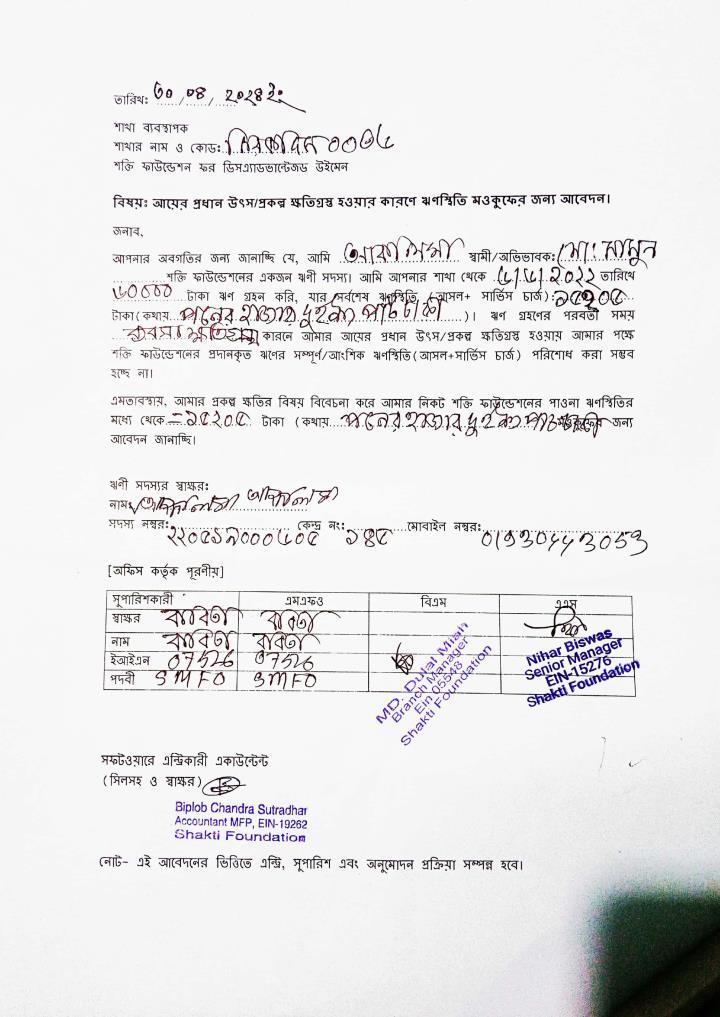 তারিখ: ৩০/০৪/২০২৪ ইং
শাখা ব্যবস্থাপক
শাখার নাম ও কোড:
শক্তি ফাউন্ডেশন ফর ডিসএ্যাডভান্টেজড উইমেন
বিষয়ঃ আয়ের প্রধান উৎস/প্রকল্প ক্ষতিগ্রস্থ হওয়ার কারণে ঋণস্থিতি মওকুফের জন্য আবেদন।
জনাব,
আপনার অবগতির জন্য জানাচ্ছি যে, আমি স্বামী/অভিভাবক: মোঃ মামুন
শক্তি ফাউন্ডেশনের একজন ঋণী সদস্য। আমি আপনার শাখা থেকে ৫/৫/২০২২ তারিখে
৬০০০০ টাকা ঋণ গ্রহন করি, যার সর্বশেষ ঋণস্থিতি (আসল+ সার্ভিস চার্জ): ১৫২০৫
টাকা(কথায় পনের হাজার দুইশত পাঁচ টাকা)। ঋণ গ্রহণের পরবর্তী সময়
ব্যবসা ক্ষতিগ্রস্থ কারনে আমার আয়ের প্রধান উৎস/প্রকল্প ক্ষতিগ্রস্থ হওয়ায় আমার পক্ষে
শক্তি ফাউন্ডেশনের প্রদানকৃত ঋণের সম্পূর্ণ/আংশিক ঋণস্থিতি(আসল+সার্ভিস চার্জ) পরিশোধ করা সম্ভব
হচ্ছে না।
এমতাবস্থায়, আমার প্রকল্প ক্ষতির বিষয় বিবেচনা করে আমার নিকট শক্তি ফাউন্ডেশনের পাওনা ঋণস্থিতির
মধ্যে থেকে =১৫২০৫ টাকা (কথায় পনের হাজার দুইশত পাঁচ মওকুফের জন্য
আবেদন জানাচ্ছি।
ঋণী সদস্যর স্বাক্ষর:
নাম:
সদস্য নম্বর: ২২০৫১৯০০০৫০৫ কেন্দ্র নং: ১৪৫ মোবাইল নম্বর: 01930443053
[অফিস কর্তৃক পূরণীয়]
সুপারিশকারী এমএফও বিএম এএস
স্বাক্ষর ববিতা ববিতা
নাম ববিতা ববিতা
ইআইএন 07526 07526
পদবী SMFO SMFO
MD. Dulal Miah
Branch Manager
Ein 05548
Shakti Foundation
Nihar Biswas
Senior Manager
EIN-15276
Shakti Foundation
সফটওয়ারে এন্ট্রিকারী একাউন্টেন্ট
(সিলসহ ও স্বাক্ষর)
Biplob Chandra Sutradhar
Accountant MFP, EIN-19262
Shakti Foundation
নোট- এই আবেদনের ভিত্তিতে এন্ট্রি, সুপারিশ এবং অনুমোদন প্রক্রিয়া সম্পন্ন হবে।